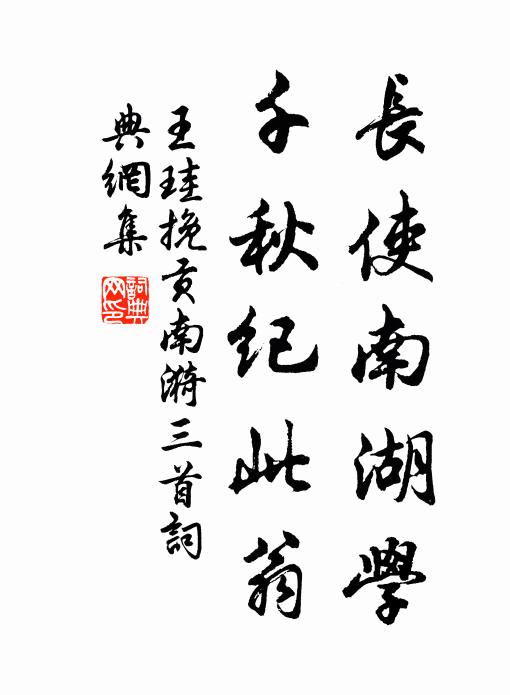 長使南湖學
千秋紀此翁
王珪挽貢南漪三首詞
典網集
詞典
网印